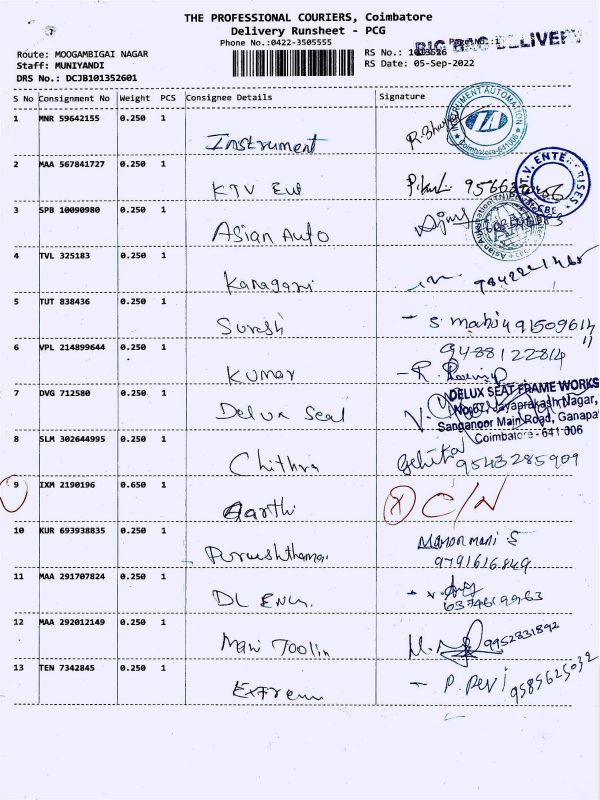 THE PROFESSIONAL COURIERS, Coimbatore
Delivery Runsheet - PCG
Phone No.:0422-3505555
BIG BAG DELIVERY
Route: MOOGAMBIGAI NAGAR
Staff: MUNIYANDI
DRS No.: DCJB101352601
RS No.:
RS Date: 05-Sep-2022
S No Consignment No Weight PCS Consignee Details Signature
1 MNR 59642155 0.250 1 Instrument
INSTRUMENT AUTOMATION IA Coimbatore-641006
2 MAA 567841727 0.250 1 KTV
3 SPB 10090980 0.250 1 Asian Auto
4 TVL 325183 0.250 1
5 TUT 838436 0.250 1 Suresh S.
6 VPL 214899644 0.250 1 Kumar 9488122814
7 DVG 712580 0.250 1 Delux Seal
DELUX SEAT FRAME WORKS
Jayaprakash Nagar,
Sanganoor Main Road, Ganapa
Coimbatore - 641 006
8 SLM 302644995 0.250 1 Chithra 9543285909
9 IXM 2190196 0.650 1 Aarthi C/N
10 KUR 693938835 0.250 1 Manonmani S
9791616849
11 MAA 291707824 0.250 1 DL
12 MAA 292012149 0.250 1 Mani Toolin 9952831892
13 TEN 7342845 0.250 1 P. Devi 9585625032